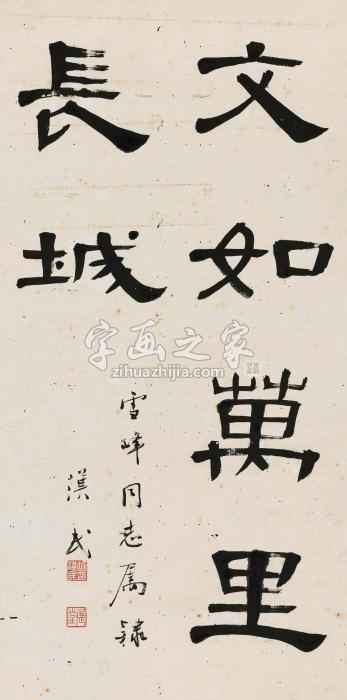 文如萬里
長城
雪峰同志屬隸
漢民
字画之家
zihuazhijia.com